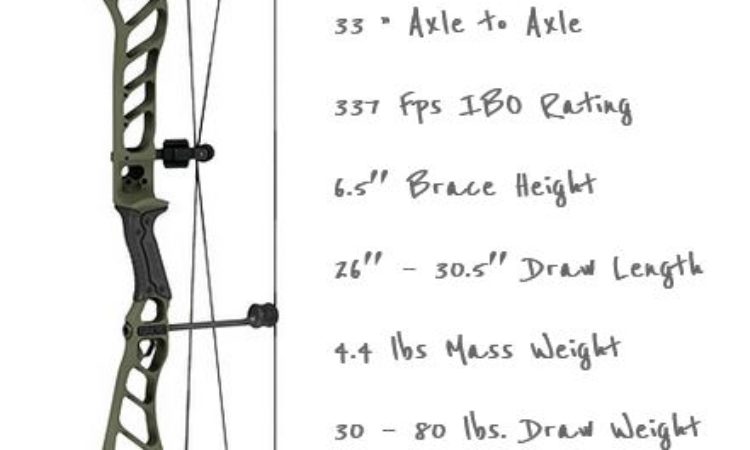 33 " Axle to Axle
337 Fps IBO Rating
6.5" Brace Height
26" - 30.5" Draw Length
4.4 lbs Mass Weight
30 - 80 lbs. Draw Weight